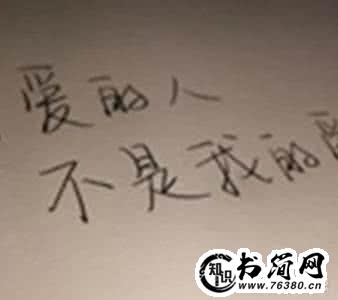 爱的人
不是我的
知识
书简网
www.76380.cn